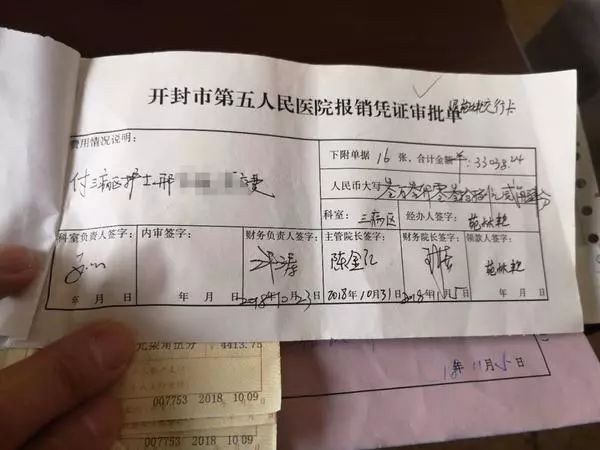 开封市第五人民医院报销凭证审批单
费用情况说明：
付三病区护士邢 费
下附单据 16 张，合计金额 ￥:33038.24
人民币大写 叁万叁仟零叁拾捌元贰角肆分
科室： 三病区 经办人签字：
科室负责人签字： 内审签字： 财务负责人签字： 主管院长签字： 财务院长签字： 领款人签字：
陈金红
年 月 日 年 月 日 2018年10月23日 2018年10月31日 2018年11月5日 年 月 日
元柒角伍分 4413.75
007753 2018 10,09
007753 2018 10,09
18年11月5日